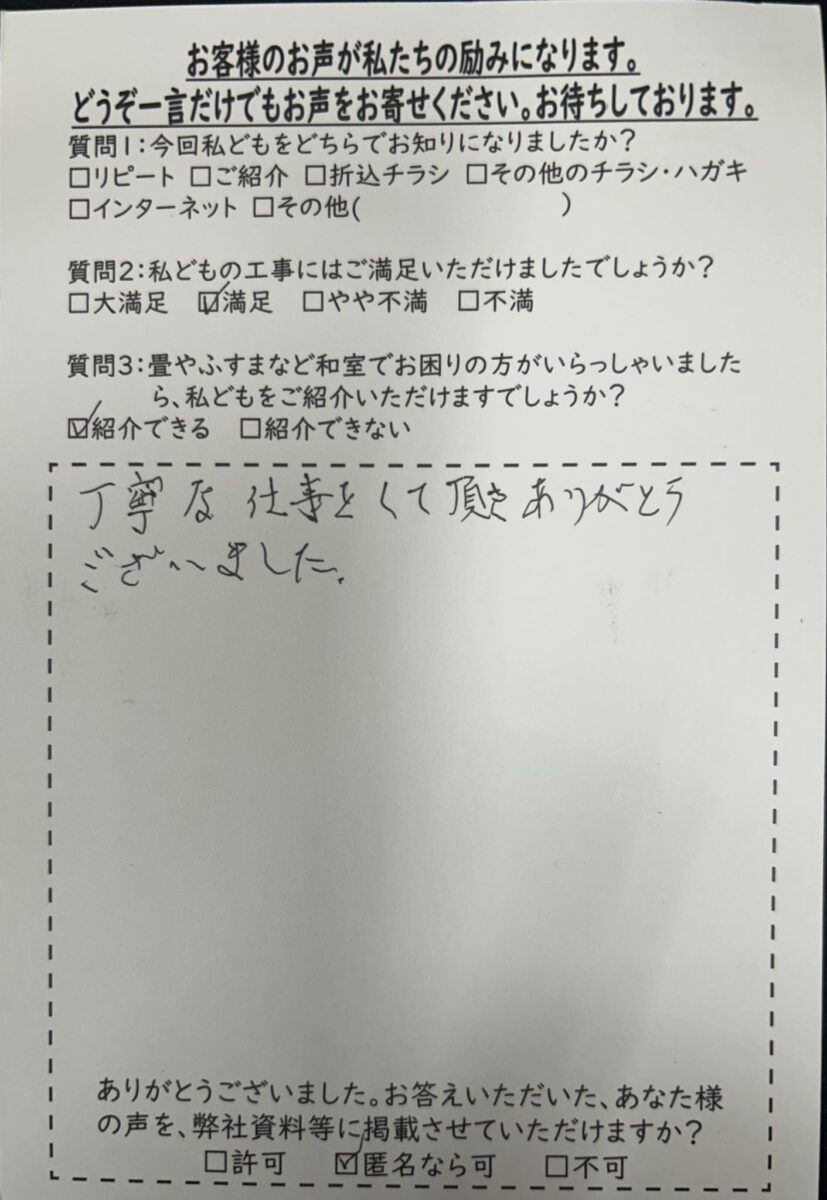 お客様のお声が私たちの励みになります。
どうぞ一言だけでもお声をお寄せください。お待ちしております。
質問1:今回私どもをどちらでお知りになりましたか?
□リピート □ご紹介 □折込チラシ □その他のチラシ・ハガキ
□インターネット □その他( )
質問2:私どもの工事にはご満足いただけましたでしょうか?
□大満足 ☑満足 □やや不満 □不満
質問3:畳やふすまなど和室でお困りの方がいらっしゃいました
ら、私どもをご紹介いただけますでしょうか?
☑紹介できる □紹介できない
丁寧な仕事をして頂きありがとう
ございました.
ありがとうございました。お答えいただいた、あなた様
の声を、弊社資料等に掲載させていただけますか?
□許可 ☑匿名なら可 □不可